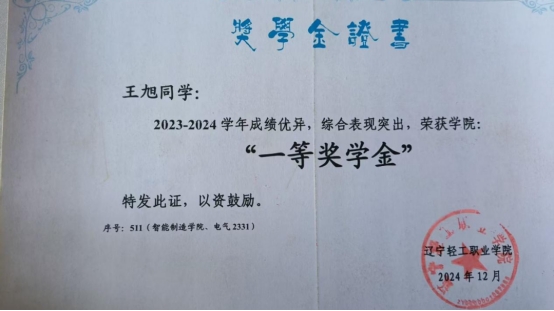 奬學金證書
王旭同学：
2023-2024 学年成绩优异，综合表现突出，荣获学院：
“一等奖学金”
特发此证，以资鼓励。
序号：511（智能制造学院、电气 2331）
辽宁轻工职业学院
2024 年 12 月